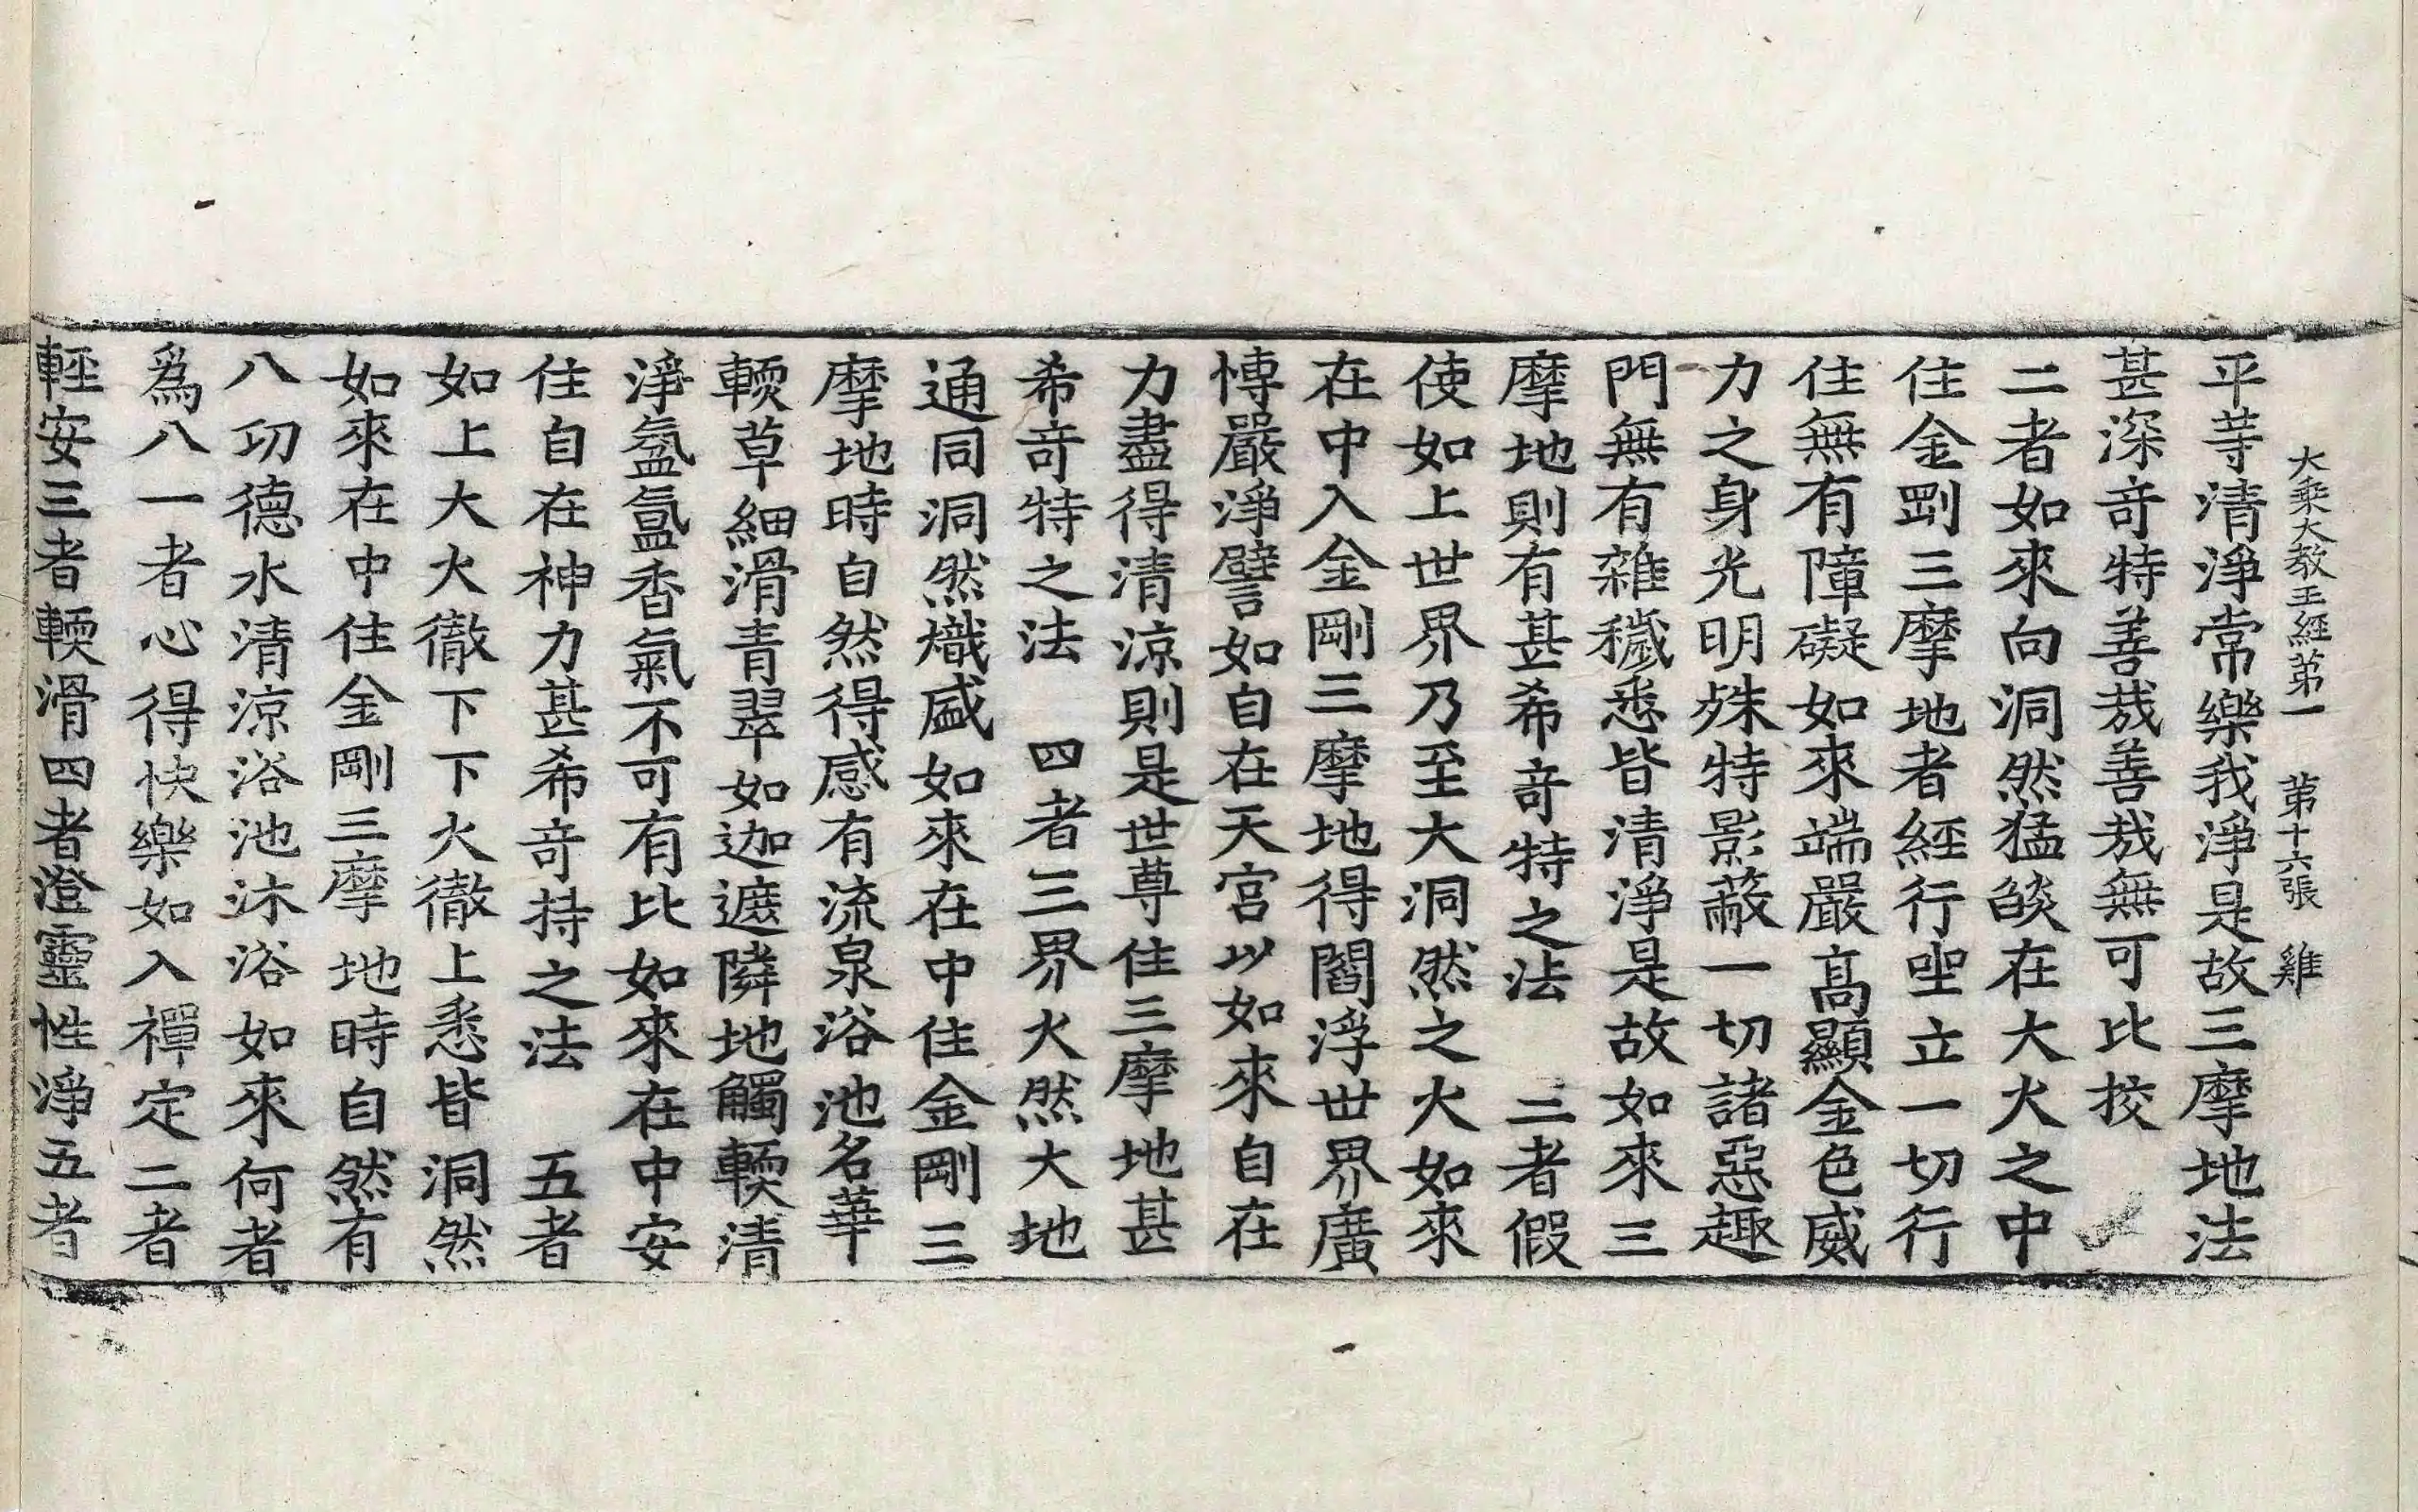 大乘大教王經第一　第十六張　雞
平等清淨常樂我淨是故三摩地法
甚深奇特善哉善哉無可比挍
二者如來向洞然猛焰在大火之中
住金剛三摩地者經行坐立一切行
住無有障礙如來端嚴高顯金色威
力之身光明殊特影蔽一切諸惡趣
門無有雜穢悉皆清淨是故如來三
摩地則有甚希奇特之法　三者假
使如上世界乃至大洞然之火如來
在中入金剛三摩地得閻浮世界廣
博嚴淨譬如自在天宮以如來自在
力盡得清涼則是世尊住三摩地甚
希奇特之法　四者三界火然大地
通同洞然熾盛如來在中住金剛三
摩地時自然得感有流泉浴池名華
輭草細滑青翠如迦遮隣地觸輭清
淨氳氳香氣不可有比如來在中安
住自在神力甚希奇持之法　五者
如上大火徹下下火徹上悉皆洞然
如來在中住金剛三摩地時自然有
八功德水清涼浴池沐浴如來何者
爲八一者心得快樂如入禪定二者
輕安三者輭滑四者澄靈性淨五者